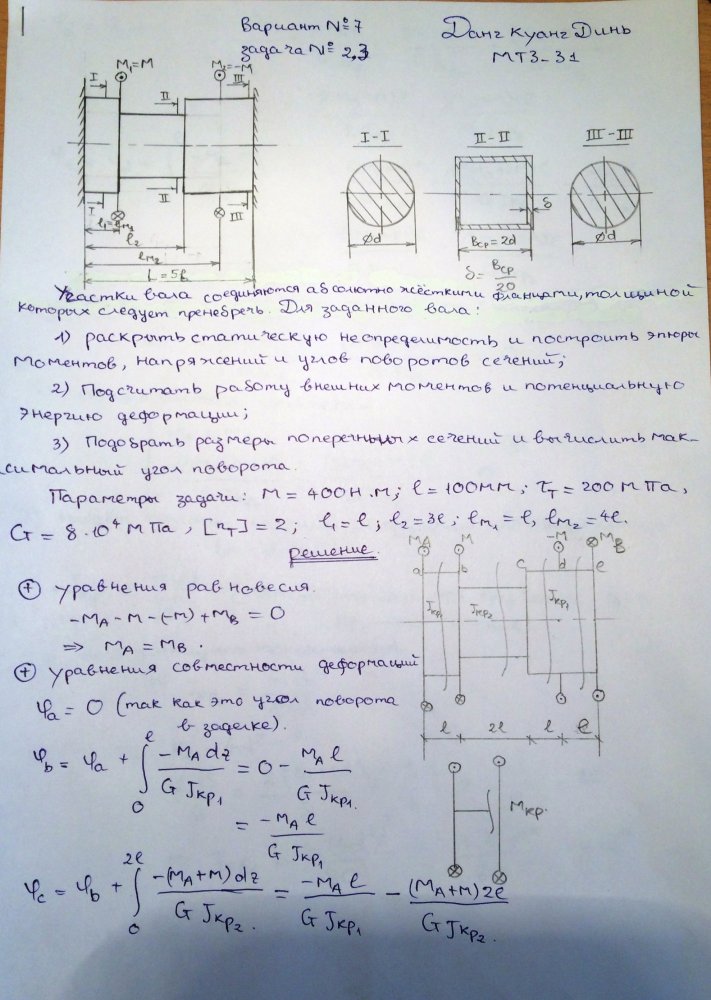 Вариант № 7
задача № 2,3
Данг Куанг Динь
МТ3-31
M₁=M
M₂=-M
I
II
III
I
II
III
l₁=lм₁
l₂
lм₂
L=5l
I-I
II-II
III-III
Ød
Bср=2d
δ
Ød
δ = Bср/20
Участки вала соединяются абсолютно жёсткими фланцами, толщиной
которых следует пренебречь. Для заданного вала:
1) раскрыть статическую неопределимость и построить эпюры
моментов, напряжений и углов поворотов сечений;
2) Подсчитать работу внешних моментов и потенциальную
энергию деформации;
3) Подобрать размеры поперечных сечений и вычислить мак-
симальный угол поворота.
Параметры задачи: M = 400 Н.м; l = 100 мм; τт = 200 МПа,
G = 8·10⁴ МПа, [nт] = 2; l₁ = l; l₂ = 3l; lм₁ = l, lм₂ = 4l.
решение.
MA
M
-M
MB
a
b
c
d
e
Jкр₁
Jкр₂
Jкр₁
l
2l
l
l
Mкр.
+ уравнения равновесия.
-MA - M - (-M) + MB = 0
⇒ MA = MB.
+ уравнения совместности деформаций
φa = 0 (так как это угол поворота
в заделке).
φb = φa + ∫₀ˡ -MA dz / G Jкр₁ = 0 - MA l / G Jкр₁.
= -MA l / G Jкр₁
φc = φb + ∫₀²ˡ -(MA+M) dz / G Jкр₂. = -MA l / G Jкр₁ - (MA+M) 2l / G Jкр₂.